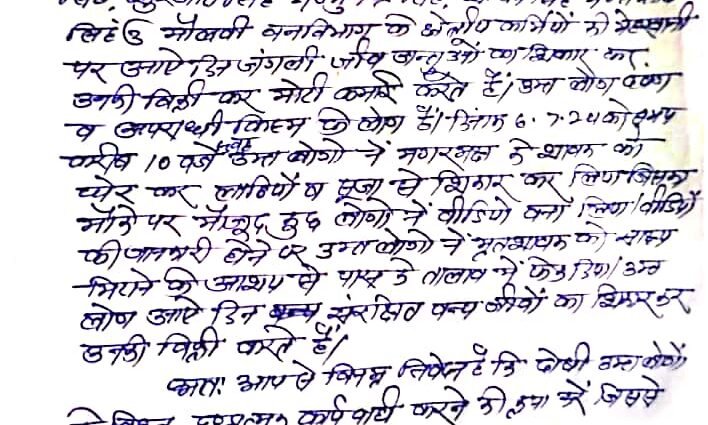 सिंह उ मौलवी वनविभाग के क्षेत्रीय कर्मियों की मेहरबानी
पर आऐ दिन जंगली जीव जन्तुओं का शिकार कर
उनकी बिक्री कर मोटी कमाई करते हैं। उक्त लोग दबंग
व अपराधी किस्म के लोग हैं। दिनांक 6.7.24 को समय
करीब 10 बजे सुबह उक्त लोगो ने मगरमच्छ के शावक को
घेर कर लाठियों व सूजा से शिकार कर लिया जिसका
मौके पर मौजूद कुछ लोगो ने वीडियो बना लिया। वीडियो
की जानकारी होने पर उक्त लोगो ने मृत शावक को साक्ष्य
मिटाने के आशय से पास के तालाब में फेंक दिया। उक्त
लोग आऐ दिन संरक्षित वन्य जीवों का शिकार कर
उनकी बिक्री करते हैं।
अतः आप से विनम्र निवेदन है कि दोषी उक्त लोगों
के विरुद्ध दण्डात्मक कार्यवाही करने की कृपा करें जिससे